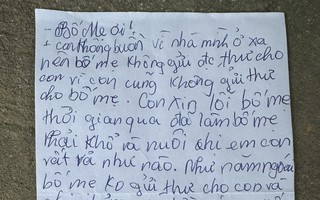 - Bố Mẹ ơi!
+ con không buồn vì nhà mình ở xa
nên bố mẹ không gửi đc thư cho
con vì con cũng không gửi thư
cho bố mẹ. Con xin lỗi bố mẹ
thời gian qua đã làm bố mẹ
phải khổ và nuôi chị em con
vất vả như nào. Như năm ngoái
bố mẹ ko gửi thư cho con và